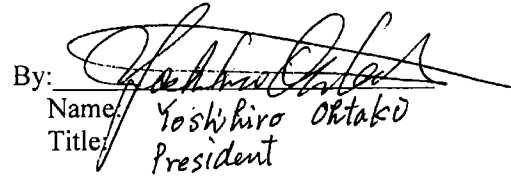 By: Yoshihiro Ohtaki
Name: Yoshihiro Ohtaki
Title: President